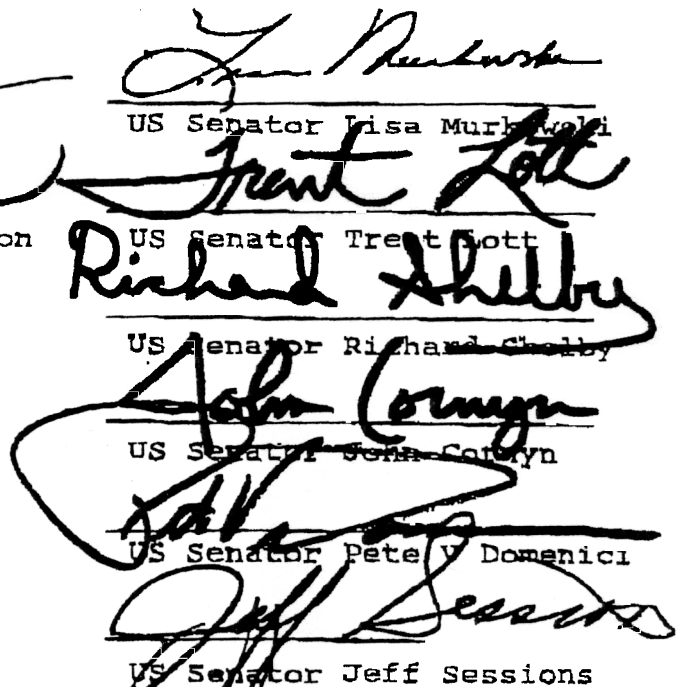 Lisa Murkowski
US Senator Lisa Murkowski
Trent Lott
on US Senator Trent Lott
Richard Shelby
US Senator Richard Shelby
John Cornyn
US Senator John Cornyn
US Senator Pete V Domenici
Jeff Sessions
US Senator Jeff Sessions